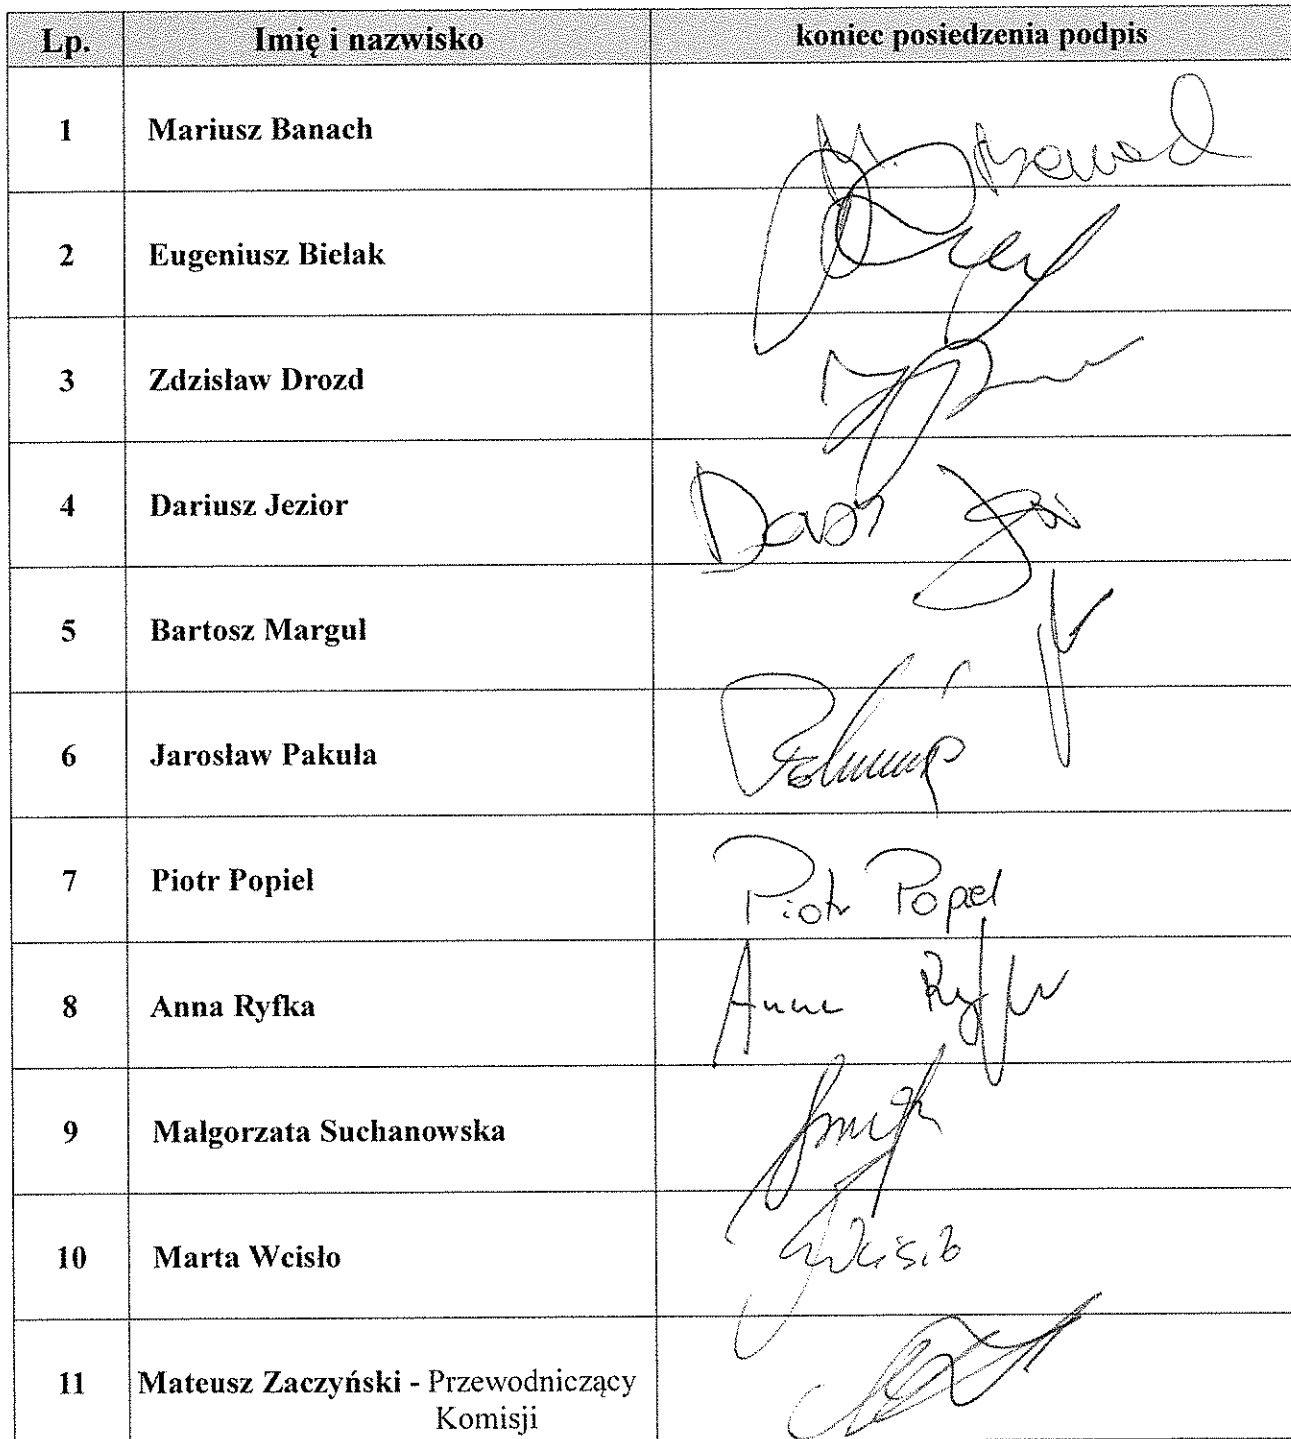 Lp. Imię i nazwisko koniec posiedzenia podpis
1 Mariusz Banach M. Banach
2 Eugeniusz Bielak
3 Zdzisław Drozd
4 Dariusz Jezior
5 Bartosz Margul
6 Jarosław Pakuła
7 Piotr Popiel Piotr Popiel
8 Anna Ryfka Anna Ryfka
9 Małgorzata Suchanowska
10 Marta Wcisło Wcisło
11 Mateusz Zaczyński - Przewodniczący
Komisji